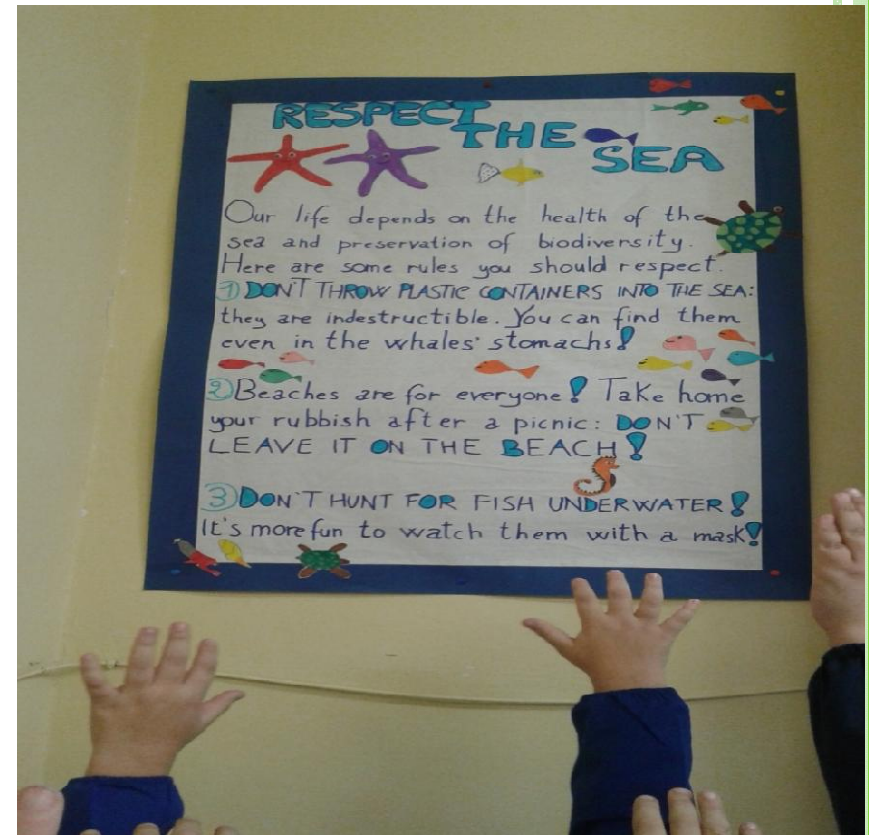 RESPECT
THE
SEA
Our life depends on the health of the
sea and preservation of biodiversity.
Here are some rules you should respect.
1) DON'T THROW PLASTIC CONTAINERS INTO THE SEA:
they are indestructible. You can find them
even in the whales' stomachs!
2) Beaches are for everyone! Take home
your rubbish after a picnic: DON'T
LEAVE IT ON THE BEACH!
3) DON'T HUNT FOR FISH UNDERWATER!
It's more fun to watch them with a mask!